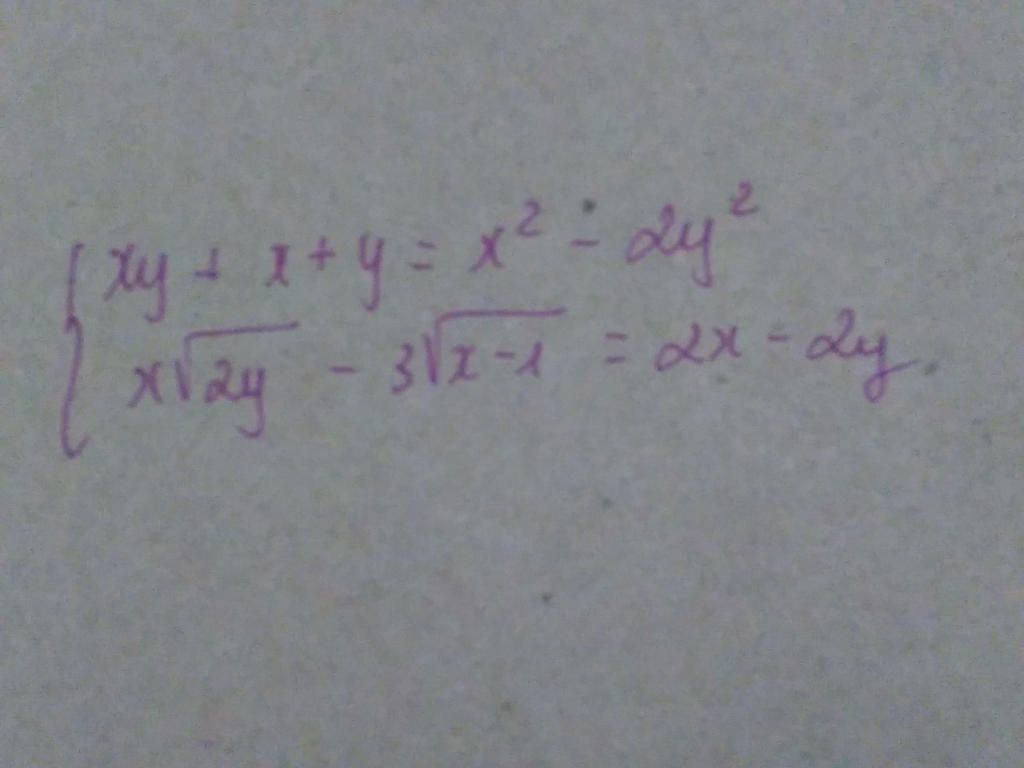 xy + x + y = x² - 2y²
x√2y - 3√x-1 = 2x - 2y.